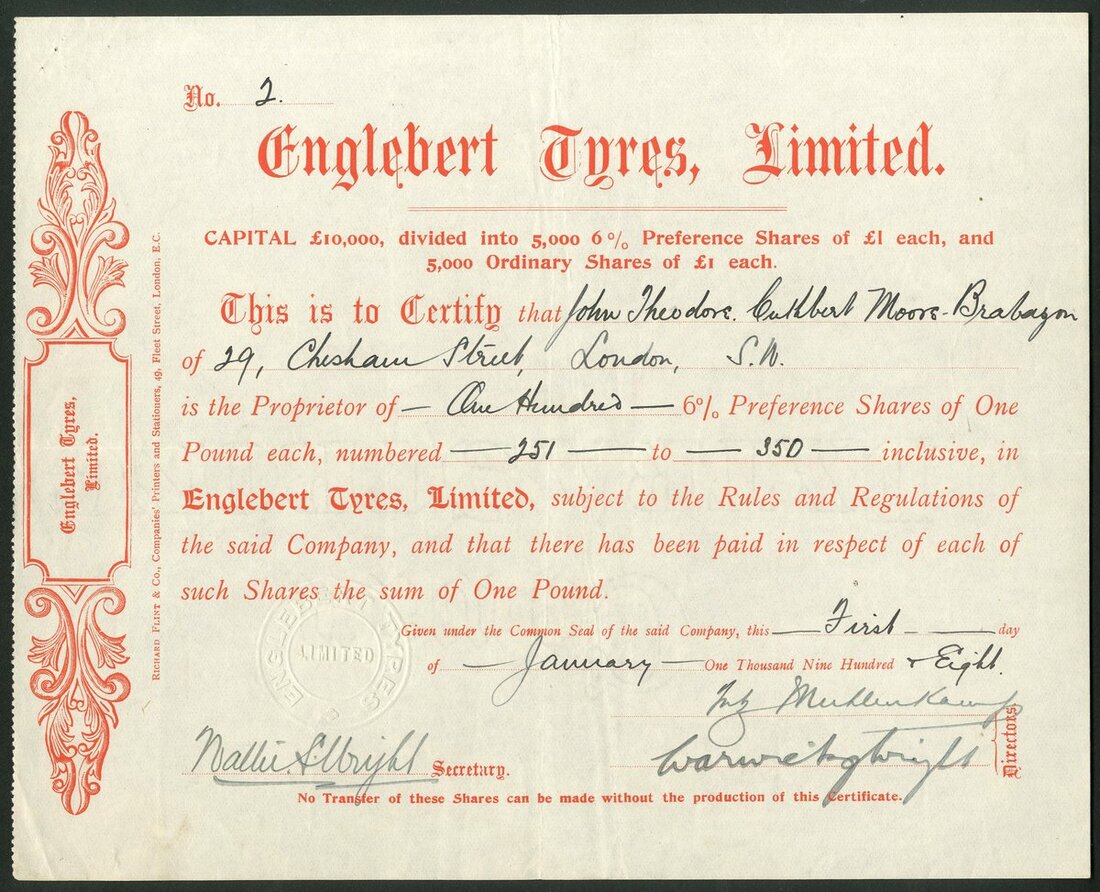 No. 2.
Englebert Tyres, Limited.
CAPITAL £10,000, divided into 5,000 6% Preference Shares of £1 each, and
5,000 Ordinary Shares of £1 each.
This is to Certify that John Theodore Cuthbert Moore-Brabazon
of 29, Chesham Street, London, S.W.
is the Proprietor of — One Hundred — 6% Preference Shares of One
Pound each, numbered — 251 — to — 350 — inclusive, in
Englebert Tyres, Limited, subject to the Rules and Regulations of
the said Company, and that there has been paid in respect of each of
such Shares the sum of One Pound.
Given under the Common Seal of the said Company, this — First — day
of — January — One Thousand Nine Hundred & Eight.
ENGLEBERT TYRES
LIMITED
Muhlenkamp
Warwick Wright
Directors.
Secretary.
No Transfer of these Shares can be made without the production of this Certificate.
Englebert Tyres,
Limited.
RICHARD FLINT & CO., Companies' Printers and Stationers, 49, Fleet Street, London, E.C.